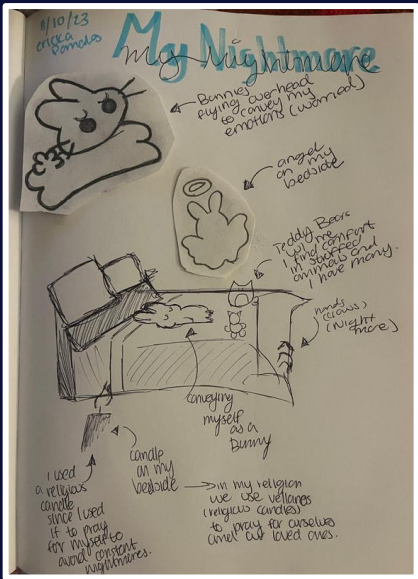 11/10/23
My Nightmare
my nightmare
Bunnies
flying overhead
to convey my
emotions (worried)
angel
on my
bedside
Teddy Bears
w/ me
I find comfort
in stuffed
animals and
I have many.
hands
(claws)
(Night
mare)
conveying
myself
as a
Bunny
I used
a religious
candle
since I used
it to pray
for myself to
avoid constant
nightmares.
candle
on my
bedside
in my religion
we use
(religious candles)
to pray for ourselves
and our loved ones.